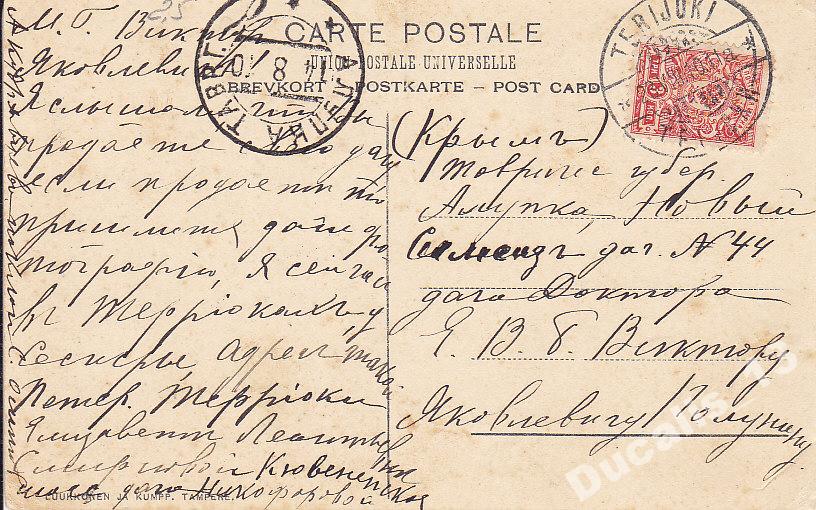 CARTE POSTALE
UNION POSTALE UNIVERSELLE
BREVKORT – POSTKARTE – POST CARD
TERIJOKI
АЛУПКА ТАВР. Г.
14 8 10
25
М. Г. Виктор
Яковлевич
Я слышал что вы
продаете дачу
если продаете то
пришлите даче фо
тографію, Я сейчас
въ Терріокахъ у
Сестры, Адресъ такой
Петер. Терріоки
Елизавети Леонтьевни
Смирновой Кювенепская
шоссе дача Никофоровой
(Крымъ)
Товриче губер.
Алупка, Новый
Симеизъ дач. N 44
дача Доктора
Е. В. Б. Виктору
Яковлевичу Голунину
LUUKKONEN JA KUMPP. TAMPERE.
Ducalis_15